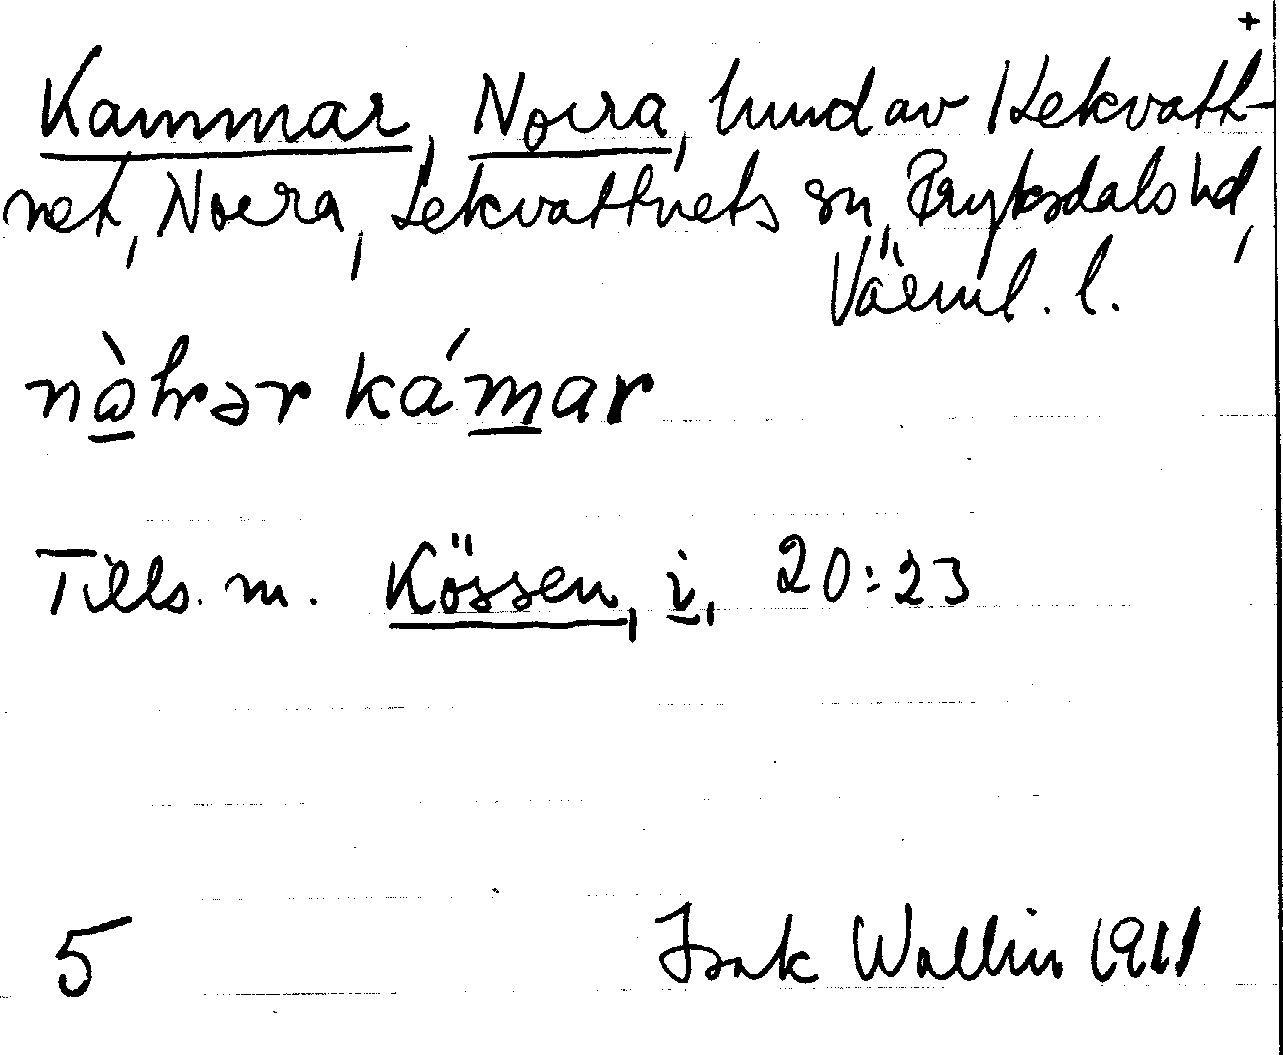 +
Kammar, Norra, hmd av Lekvatt-
net, Norra, Lekvattnets sn, Fryksdals hd,
Värml. l.
nɷ̀hrər kámar
Tills. m. Kössen, i, 20:23
5 Isak Wallin 1911